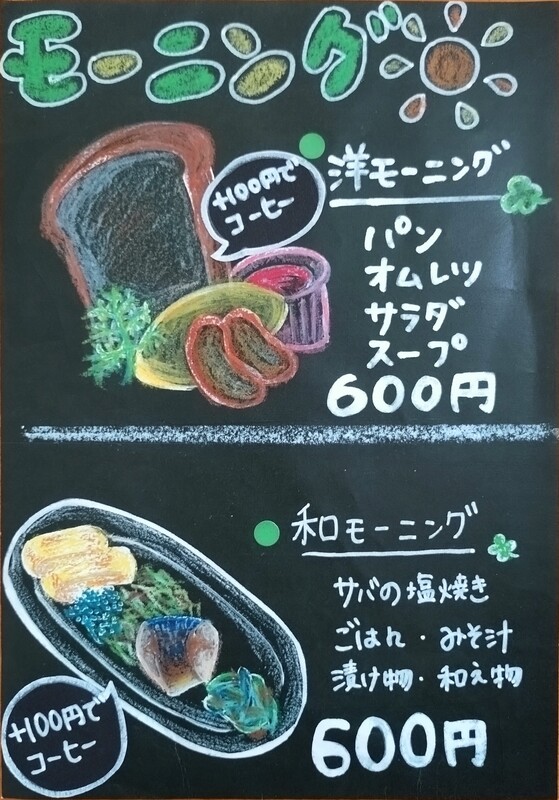 モーニング
洋モーニング
+100円で
コーヒー
パン
オムレツ
サラダ
スープ
600円
和モーニング
サバの塩焼き
ごはん・みそ汁
漬け物・和え物
600円
+100円で
コーヒー